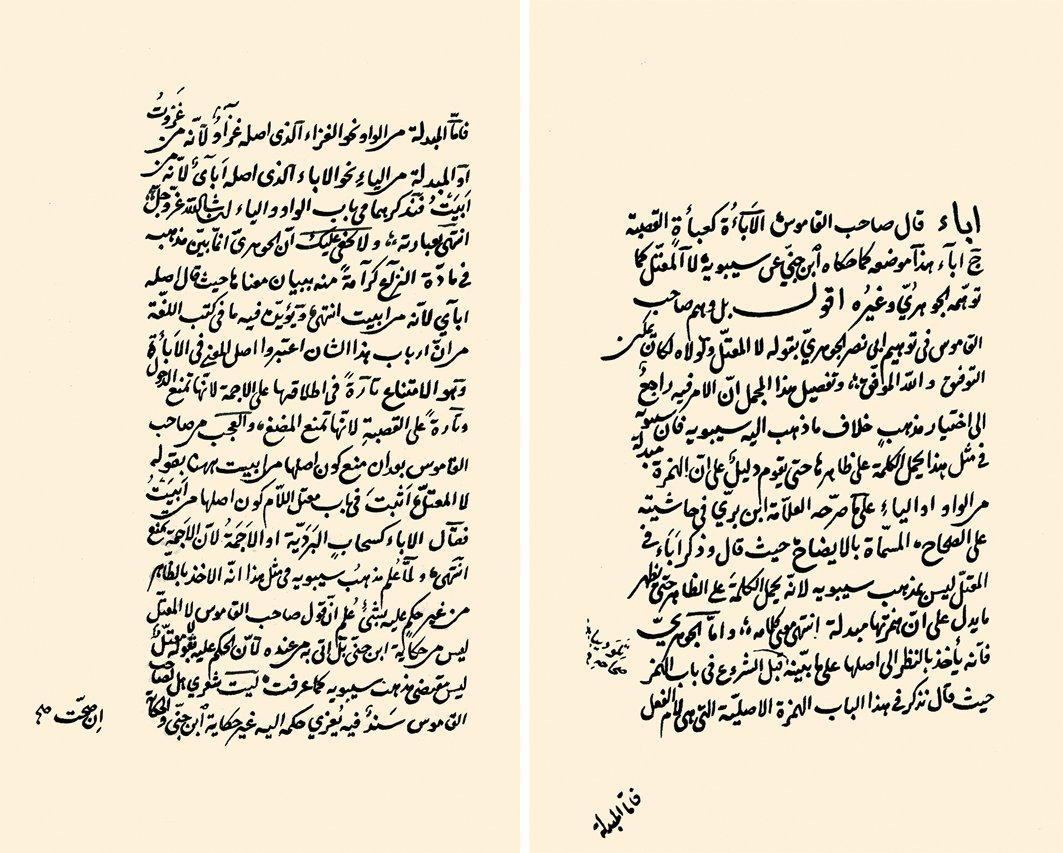 اباء قال صاحب القاموس الأباءة كعباءة القصبة
ج اباء هذا موضعه كما حكاه ابن جني عن سيبويه لا المعتل كما
توهمه الجوهري وغيره اقول بل وهم صاحب
القاموس في توهيم ابى نصر الجوهري بقوله لا المعتل ولولاه لكان
التوفق والله الموفق وتفصيل هذا المجمل ان الامر فيه راجع
الى اختيار مذهب خلاف ما ذهب اليه سيبويه فان سيبويه
في مثل هذا يحمل الكلمة على ظاهرها حتى يقوم دليل على ان الهمزة مبدلة
من الواو او الياء على ما صرحه العلامة ابن بري في حاشيته
على الصحاح المسماة بالايضاح حيث قال وذكر اباء في
المعتل ليس بمذهب سيبويه لانه يحمل الكلمة على الظاهر حتى يظهر
ما يدل على ان همزتها مبدلة انتهى معنى كلامه واما الجوهري
فانه يأخذ بالنظر الى اصلها على ما بينه قبل الشروع في باب الهمز
حيث قال نذكر في هذا الباب الهمزة الاصلية التي هي لام الفعل
فاما المبدلة
فاما المبدلة من الواو نحو العزاء الذي اصله عزاو لانه من عزوت
او المبدلة من الياء نحو الاباء الذي اصله اباي لانه من
ابيت فنذكرهما في باب الواو والياء ان شاء الله عز وجل
انتهى بعبارته ولا يخفى عليك ان الجوهري انما بين مذهبه
في مادة منه ببيان معناها حيث قال اصله
اباي لانه من ابيت انتهى ويؤيده فيه ما في كتب اللغة
من ان ارباب هذا الشان اعتبروا اصل المعنى في الأباءة
وهو الامتناع تارة في اطلاقها على الاجمة لانها تمنع
وتارة على القصبة لانها تمنع المضغ والعجب من صاحب
القاموس بعد ان منع كون اصلها من ابيت ههنا بقوله
لا المعتل اثبت في باب معتل اللام كون اصلها من ابيت
فقال الاباء كسحاب البردية او الاجمة لان الاجمة تمنع
انتهى ولما علم مذهب سيبويه في مثل هذا انه الاخذ بالظاهر
من غير حكم عليه بشيء علم ان قول صاحب القاموس لا المعتل
ليس من حكاية ابن جني بل اتى به من عنده لان الحكم عليه بقوله لا معتل
ليس بمقتضى مذهب سيبويه كما عرفت ليت شعري هل لصاحب
القاموس سند فيه يعزي حكمه اليه غير حكاية ابن جني والحكاية
ان صحت